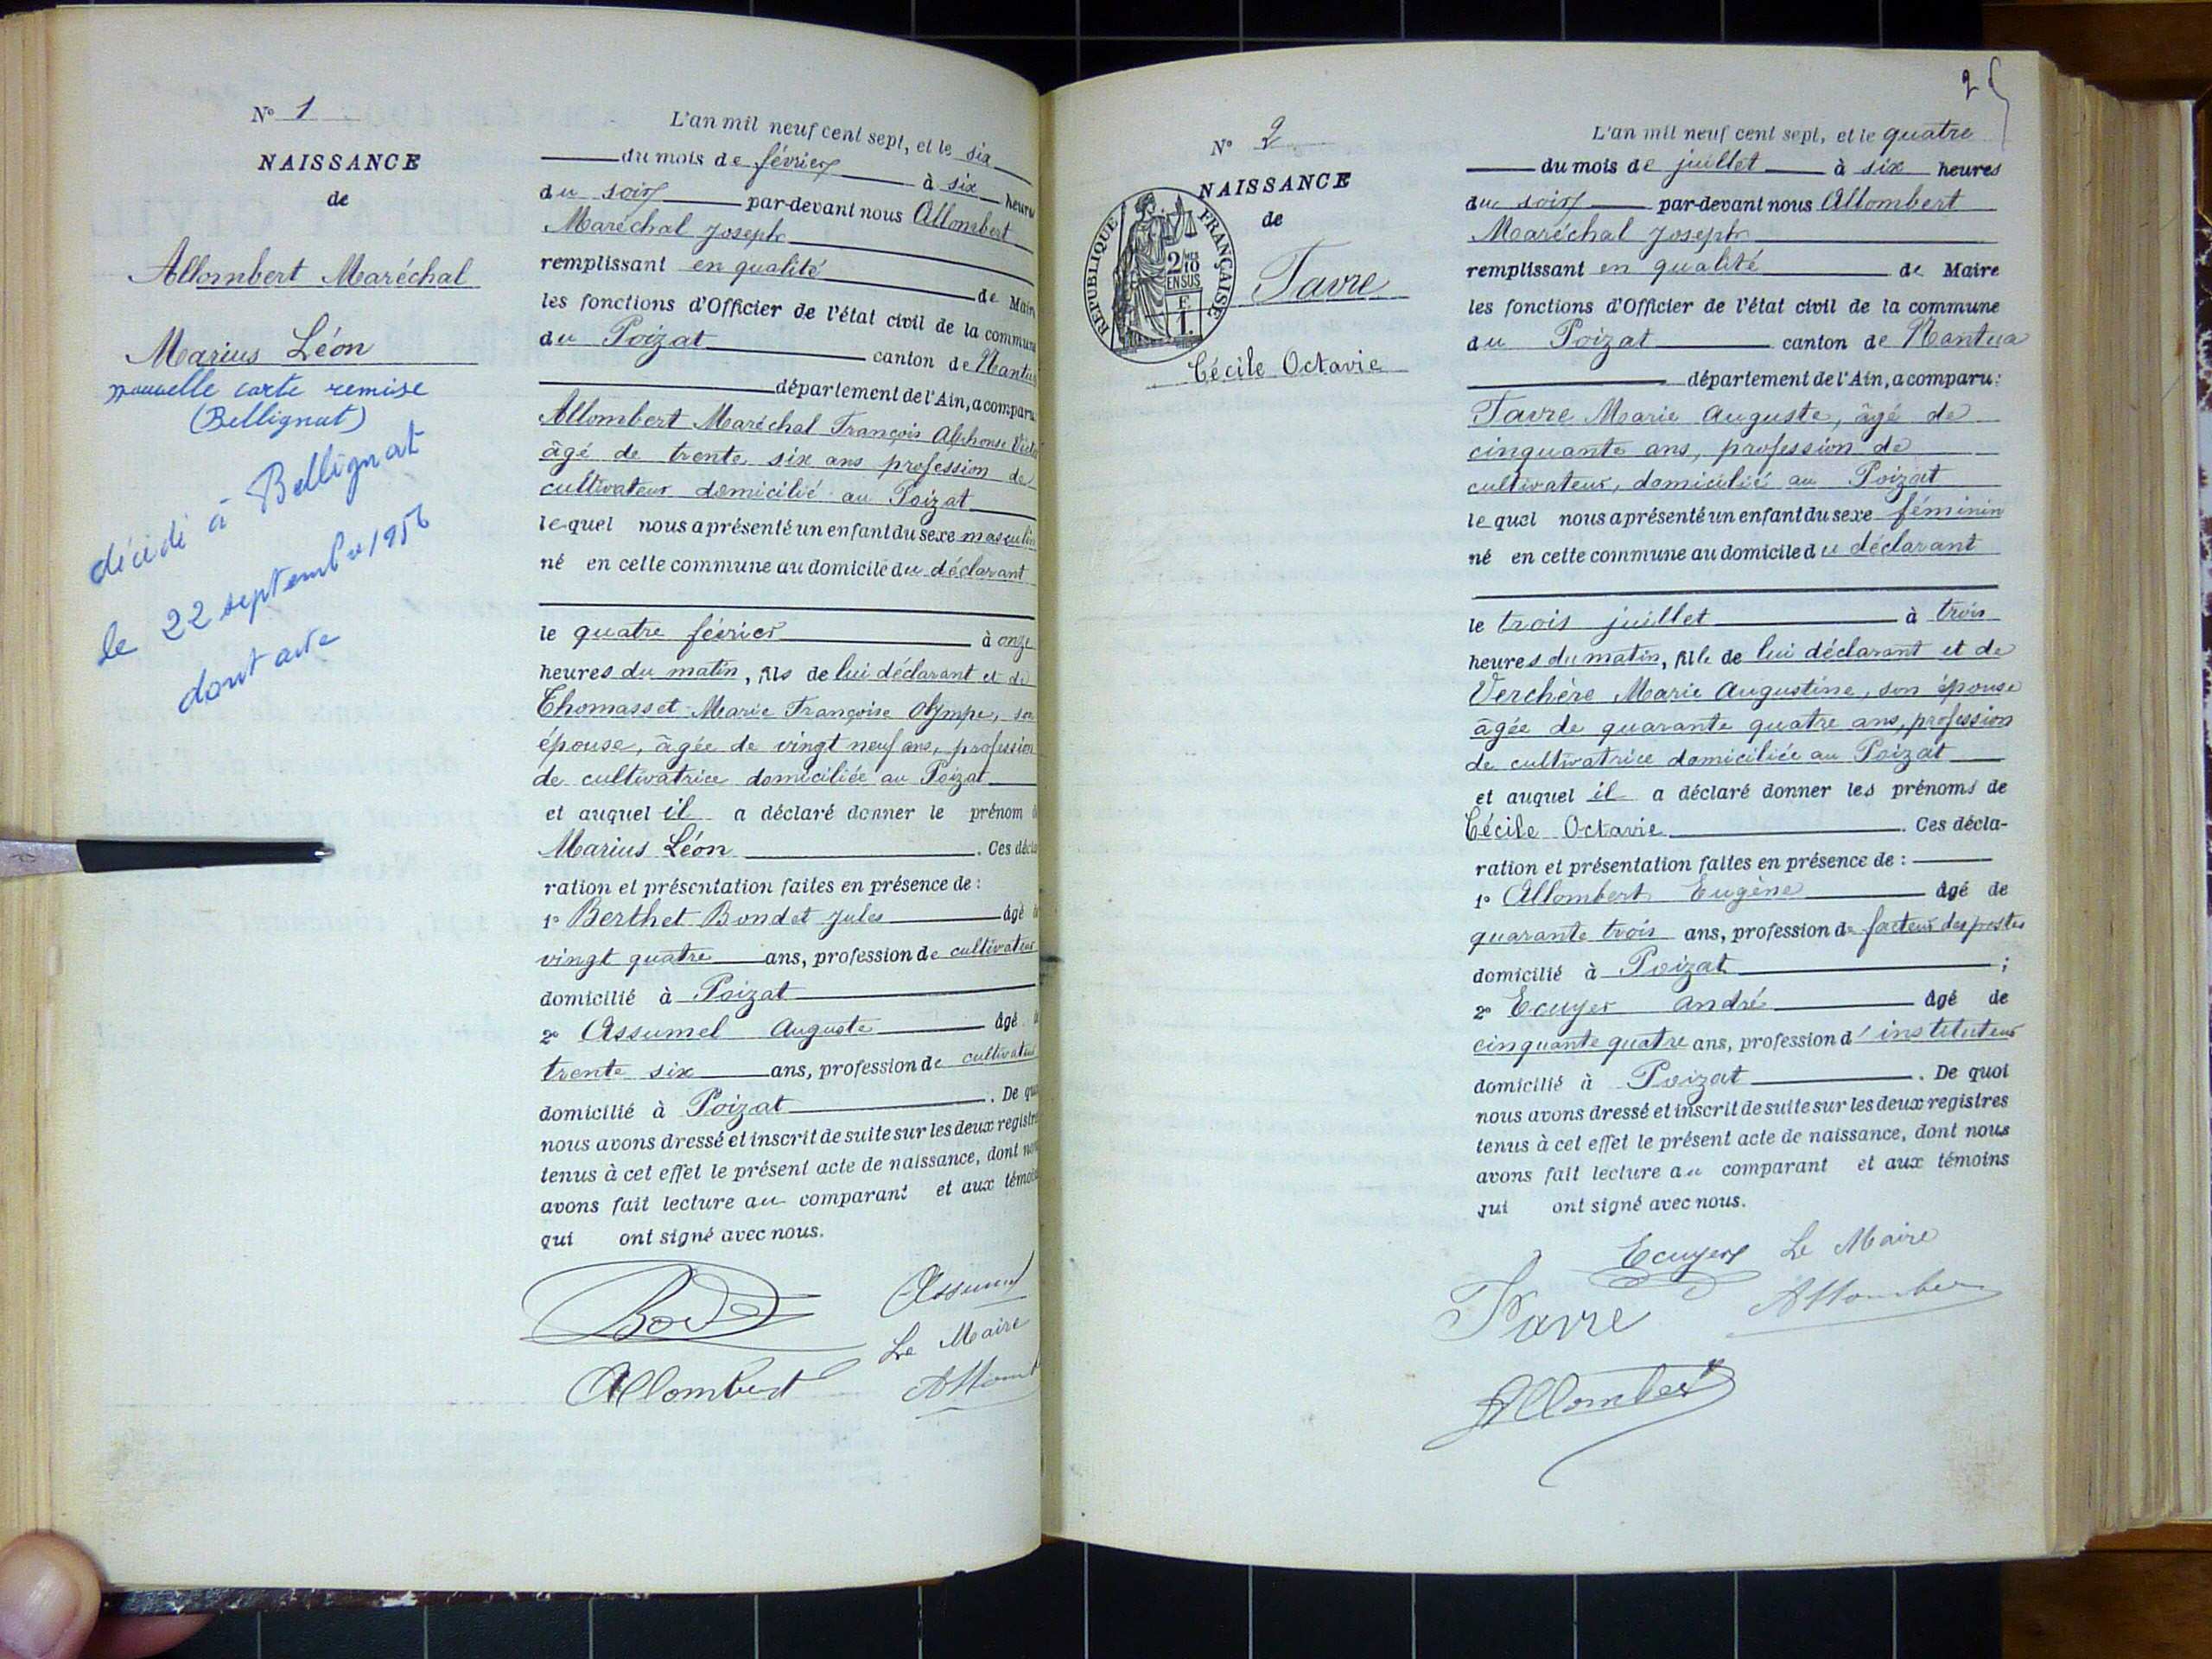 N° 1
NAISSANCE
de
Allombert Maréchal
Marius Léon
nouvelle carte remise
(Bellignat)
décédé à Bellignat
le 22 septembre 1956
dont acte
L'an mil neuf cent sept, et le six
du mois de février à six heures
du soir par-devant nous Allombert
Maréchal Joseph
remplissant en qualité de Maire
les fonctions d'Officier de l'état civil de la commune
du Poizat canton de Nantua
département de l'Ain, a comparu
Allombert Maréchal François Alphonse
âgé de trente six ans profession de
cultivateur domicilié au Poizat
lequel nous a présenté un enfant du sexe masculin
né en cette commune au domicile du déclarant
le quatre février à onze
heures du matin, fils de lui déclarant et de
Thomasset Marie Françoise Olympe, son
épouse, âgée de vingt neuf ans, profession
de cultivatrice domiciliée au Poizat
et auquel il a déclaré donner le prénom
Marius Léon. Ces décla-
ration et présentation faites en présence de :
1° Berthet Bondet Jules âgé
vingt quatre ans, profession de cultivateur
domicilié à Poizat
2° Assumel Auguste âgé
trente six ans, profession de cultivateur
domicilié à Poizat. De quoi
nous avons dressé et inscrit de suite sur les deux registres
tenus à cet effet le présent acte de naissance, dont nous
avons fait lecture au comparant et aux témoins
qui ont signé avec nous.
Assumel
Le Maire
Allombert
N° 2
NAISSANCE
de
RÉPUBLIQUE FRANÇAISE
2/10 EN SUS
F. 1.
Favre
Cécile Octavie
L'an mil neuf cent sept, et le quatre
du mois de juillet à six heures
du soir par-devant nous Allombert
Maréchal Joseph
remplissant en qualité de Maire
les fonctions d'Officier de l'état civil de la commune
du Poizat canton de Nantua
département de l'Ain, a comparu :
Favre Marie Auguste, âgé de
cinquante ans, profession de
cultivateur, domicilié au Poizat
lequel nous a présenté un enfant du sexe féminin
né en cette commune au domicile du déclarant
le trois juillet à trois
heures du matin, fille de lui déclarant et de
Verchère Marie Augustine, son épouse
âgée de quarante quatre ans, profession
de cultivatrice domiciliée au Poizat
et auquel il a déclaré donner les prénoms de
Cécile Octavie. Ces décla-
ration et présentation faites en présence de :
1° Allombert Eugène âgé de
quarante trois ans, profession de facteur des postes
domicilié à Poizat ;
2° Ecuyer André âgé de
cinquante quatre ans, profession d'instituteur
domicilié à Poizat. De quoi
nous avons dressé et inscrit de suite sur les deux registres
tenus à cet effet le présent acte de naissance, dont nous
avons fait lecture au comparant et aux témoins
qui ont signé avec nous.
Ecuyer Le Maire
Favre Allombert
Allombert